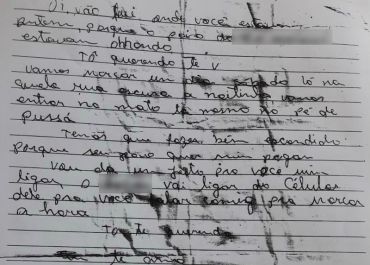 Oi, não fui onde você estava
ontem, porque o povo do
estavam olhando.
Tô querendo te v
vamos marcar um lá na
quela rua escura a noitinha vamos
entrar no mato lá mesmo no pé de
pussá
Temos que fazer bem escondido
porque seu povo quer
Vou da um jeito pra você mim
ligar, o vai ligar do Célular
dele pra você falar comigo pra marcar
a hora
To te querendo
te amo